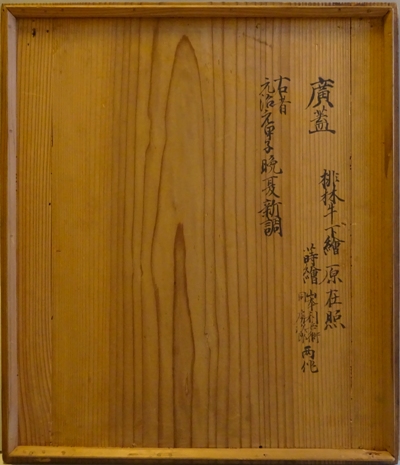 廣蓋
桃林牛下繪 原在照
蒔繪
両作
右者
元治元甲子晩夏新調